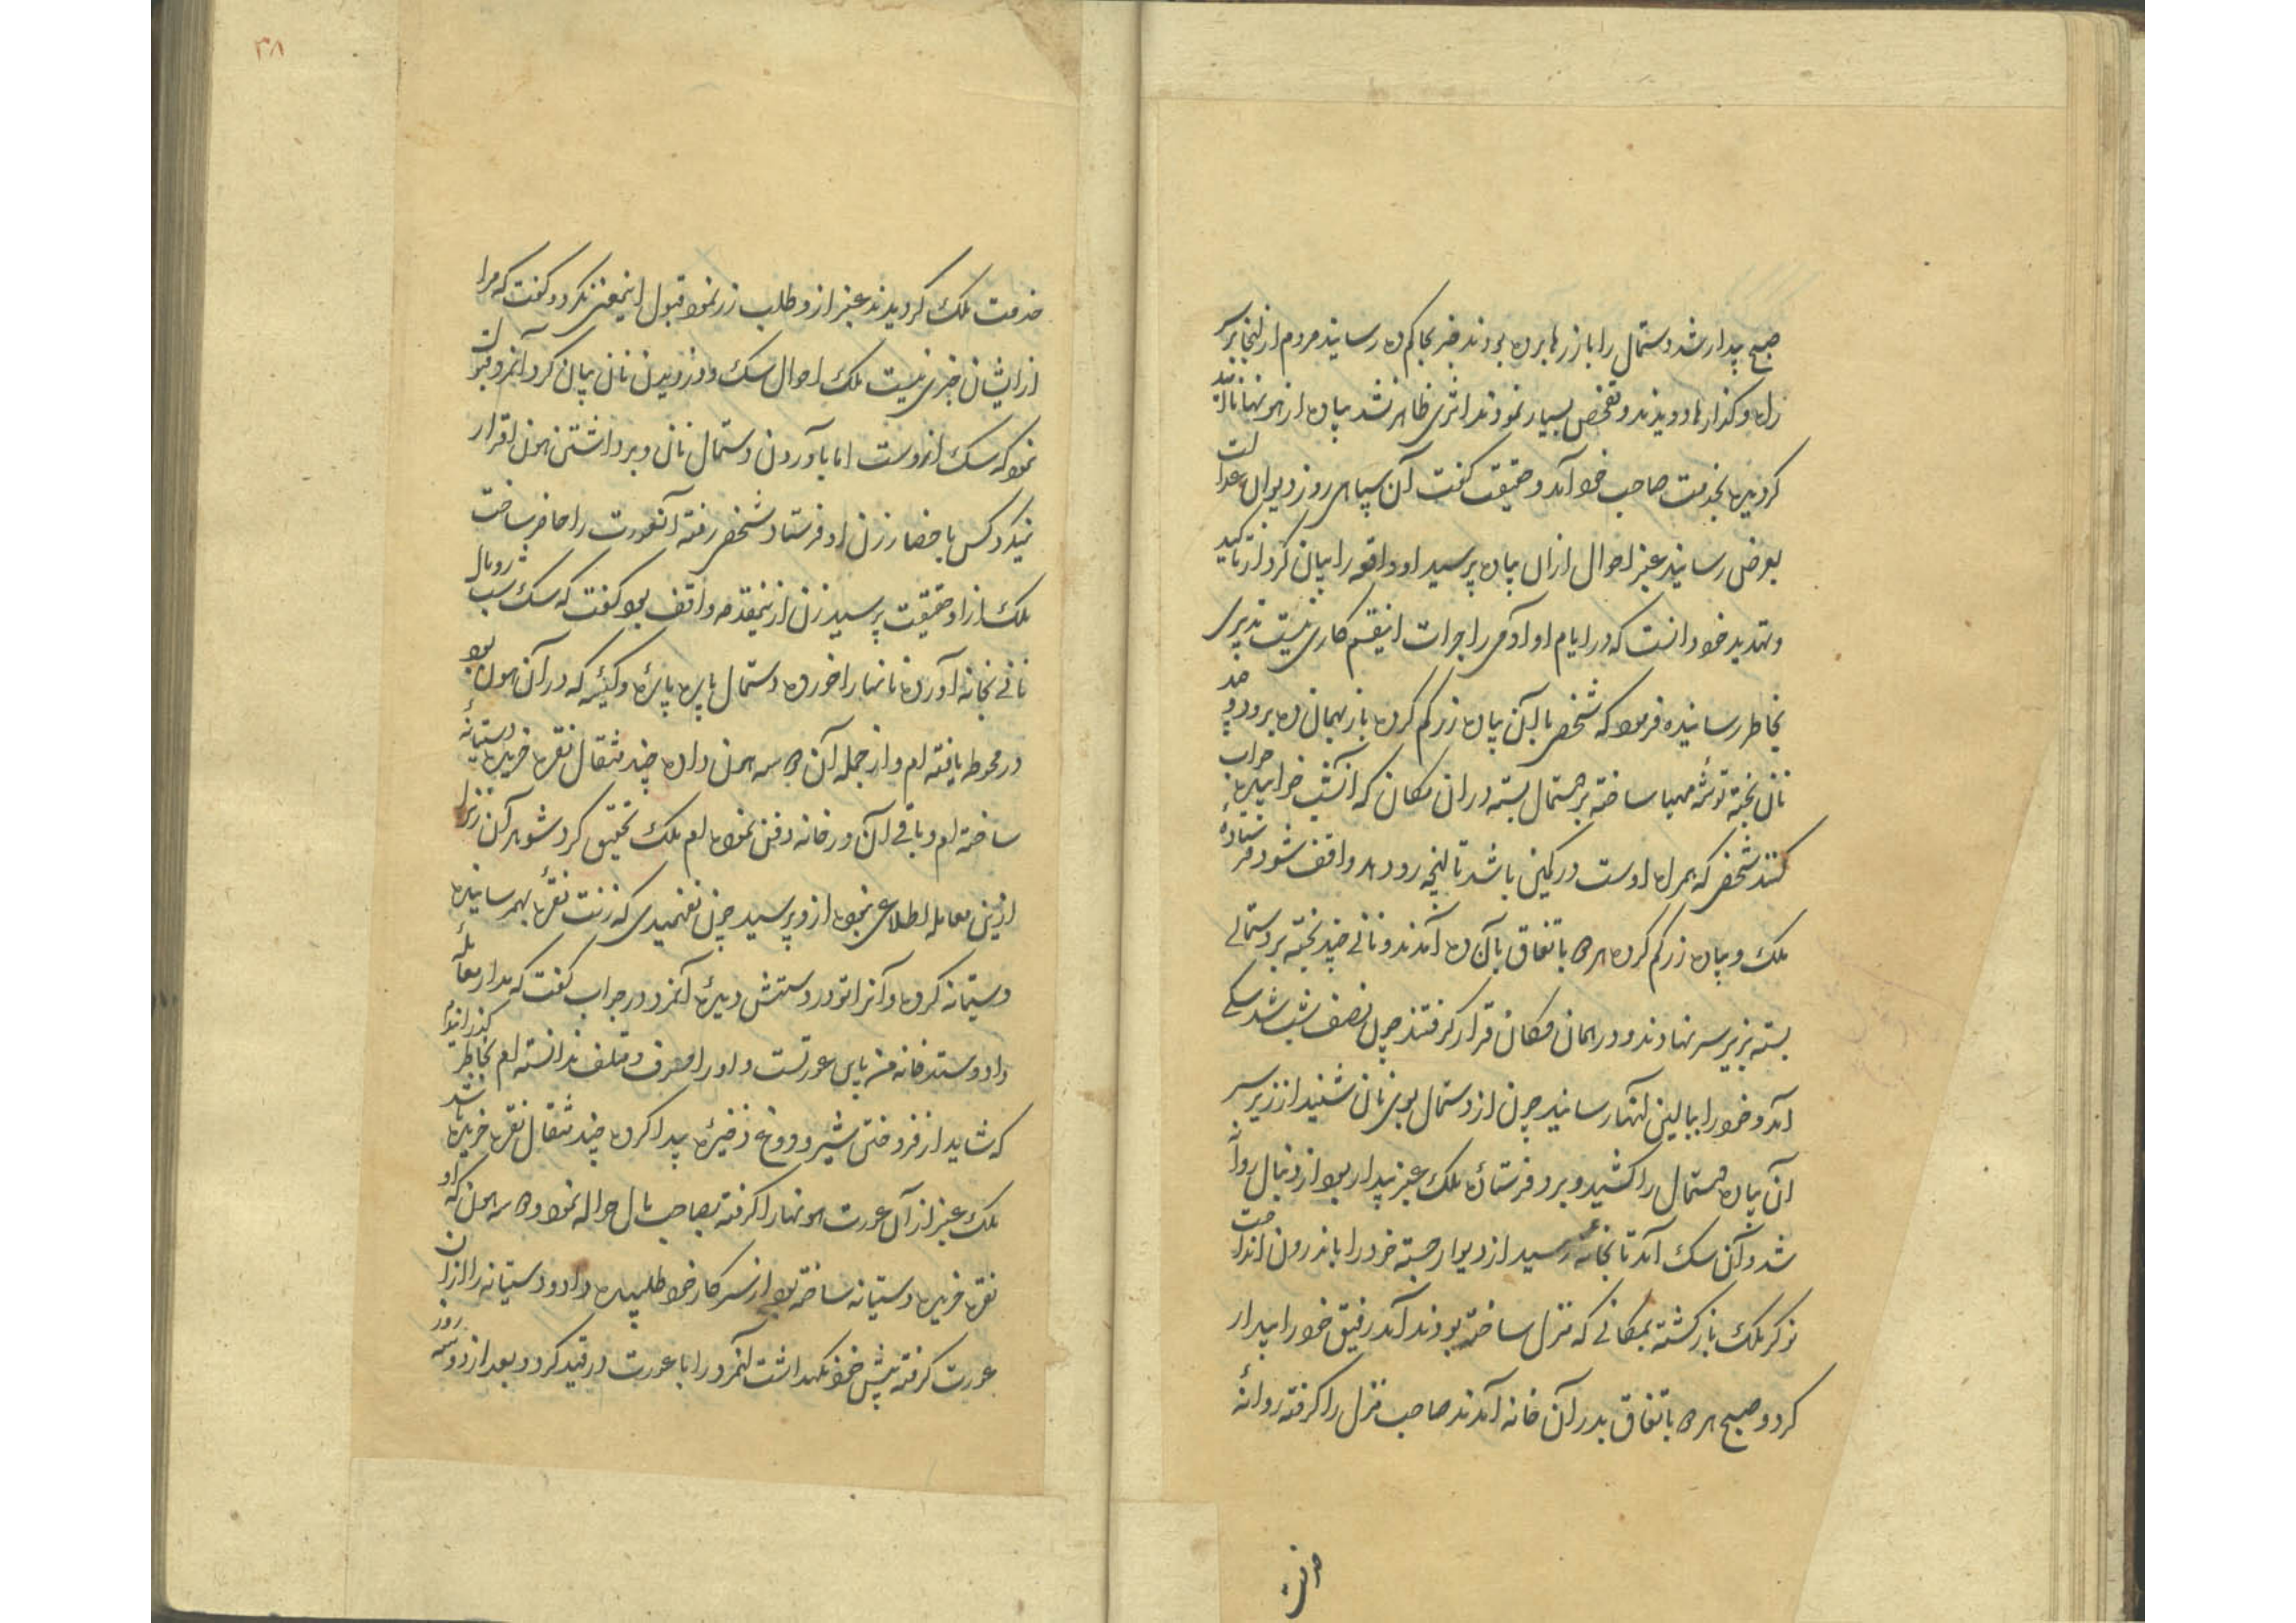 صبح بیدار شد دستمال را با زرها برده بودند خبر بحاکم ده رسانید مردم از انجا بر سر
راه و گذارها دویدند و تفحص بسیار نمودند اثری ظاهر نشد بیاده از هونها ناامید
کردیده بخدمت صاحب خود آمد و حقیقت کفت آن سپاهی روز دیوان عدالت
بعرض رسانید عنبر احوال ازان بیاده پرسید او واقعه را بیان کرد از تاکید
و تهدید خود دانست که در ایام او آدمی را جرات اینقسم کاری نیست تدبیری
بخاطر رسانیده فرمود که شخصی با این بیاده زر کم کرده باز بهمان ده برود و چند
نان پخته توشه مهیا ساخته بر دستمال بسته دران مکان که انشب خوابیده خواب
کنند شخصی که همراه اوست در کمین باشد تا نتیجه رو دهد واقف شود فرستاده
ملک و بیاده زر کم کرده هر دو باتفاق بآن ده آمدند و نانی چند پخته بر دستمالی
بسته بزیر سر نهادند و در همان مکان قرار کرفتند چون نصف شب شد سکی
آمد و خود را ببالین انها رسانید چون از دستمال بوی نان شنید از زیر سر
آن بیاده دستمال را کشید و برد فرستاده ملک عنبر بیدار بود از دنبال روانه
شد و آن سک آمد تا بخانه رسید از دیوار جسته خود را باندرون انداخت
نوکر ملک باز کشته بمکانی که منزل ساخته بودند آمد رفیق خود را بیدار
کرد و صبح هر دو باتفاق بدر آن خانه آمدند صاحب منزل را کرفته روانه
خدمت
۳۸
خدمت ملک کردیدند عنبر ازو طلب زر نمود قبول اینمعنی نکرد و کفت که مرا
ازایشان خبری نیست ملک احوال سک و دزدیدن نان بیان کرد آنمرد قبول
نمود که سک ازوست اما بآوردن دستمال نان و برداشتن هون اقرار
نمیکرد کس باحضار زن او فرستاد شخص رفته آنعورت را حاضر ساخت
ملک ازاو حقیقت پرسید زن ازینمقدمه واقف بود کفت که سک شب رومال
نانی بخانه آورده نانها را خورده دستمال پاره پاره و کیسه که در آن هون بود
در محوطه یافته ام و از جمله آن دو سه هون داده چند مثقال نقره خریده دستیانه
ساخته ام و باقی آن در خانه دفن نموده ام ملک تحقیق کرد شوهر آن زنرا
ازین معامله اطلاعی نبود ازو پرسید چون نفهمیدی که زنت نقره بهمرسانیده
دستیانه کرده و آنرا تو در دستش دیده آنمرد در جواب کفت که مدار معامله
داد و ستد خانه من بااین عورتست و او را مصرف و متلف ندانسته ام بخاطر کذرانیدم
که شاید از فروختن شیر و دوغ ذخیره پیدا کرده چند مثقال نقره خریده باشد
ملک عنبر از آن عورت هونها را کرفته بصاحب مال حواله نمود و دو سه هون که او
نقره خریده دستیانه ساخته بود از سرکار خود طلبیده داد و دستیانه را ازان
عورت کرفته پیش خود نکهداشت آنمرد را با عورت در قید کرد و بعد از دو سه روز